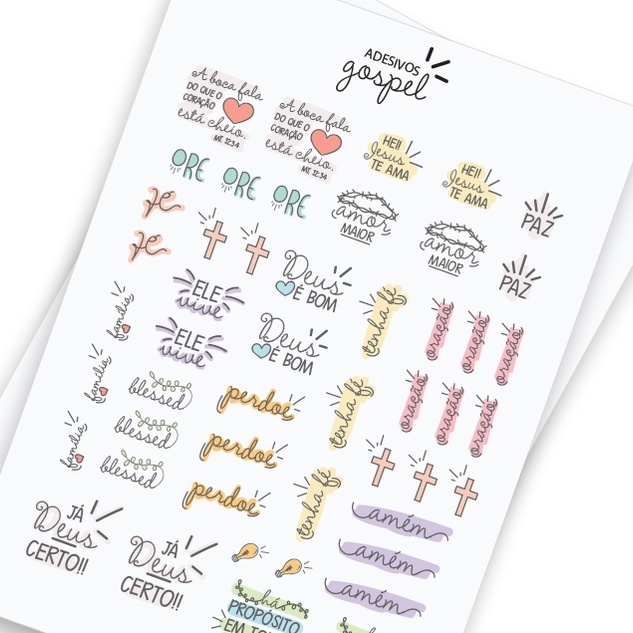 ADESIVOS
gospel
A boca fala
DO QUE O
CORAÇÃO
está cheio.
MT. 12:34
A boca fala
DO QUE O
CORAÇÃO
está cheio.
MT. 12:34
HEI!
Jesus
TE AMA
HEI!
Jesus
TE AMA
PAZ
ORE
ORE
ORE
amor
MAIOR
amor
MAIOR
PAZ
Fé
Fé
Deus
É BOM
ELE
vive
tenha fé
oração
oração
oração
família
ELE
vive
Deus
É BOM
família
blessed
perdoe
tenha fé
oração
oração
oração
blessed
perdoe
família
blessed
perdoe
tenha fé
amém
amém
amém
JÁ
Deus
CERTO!!
JÁ
Deus
CERTO!!
há
PROPÓSITO